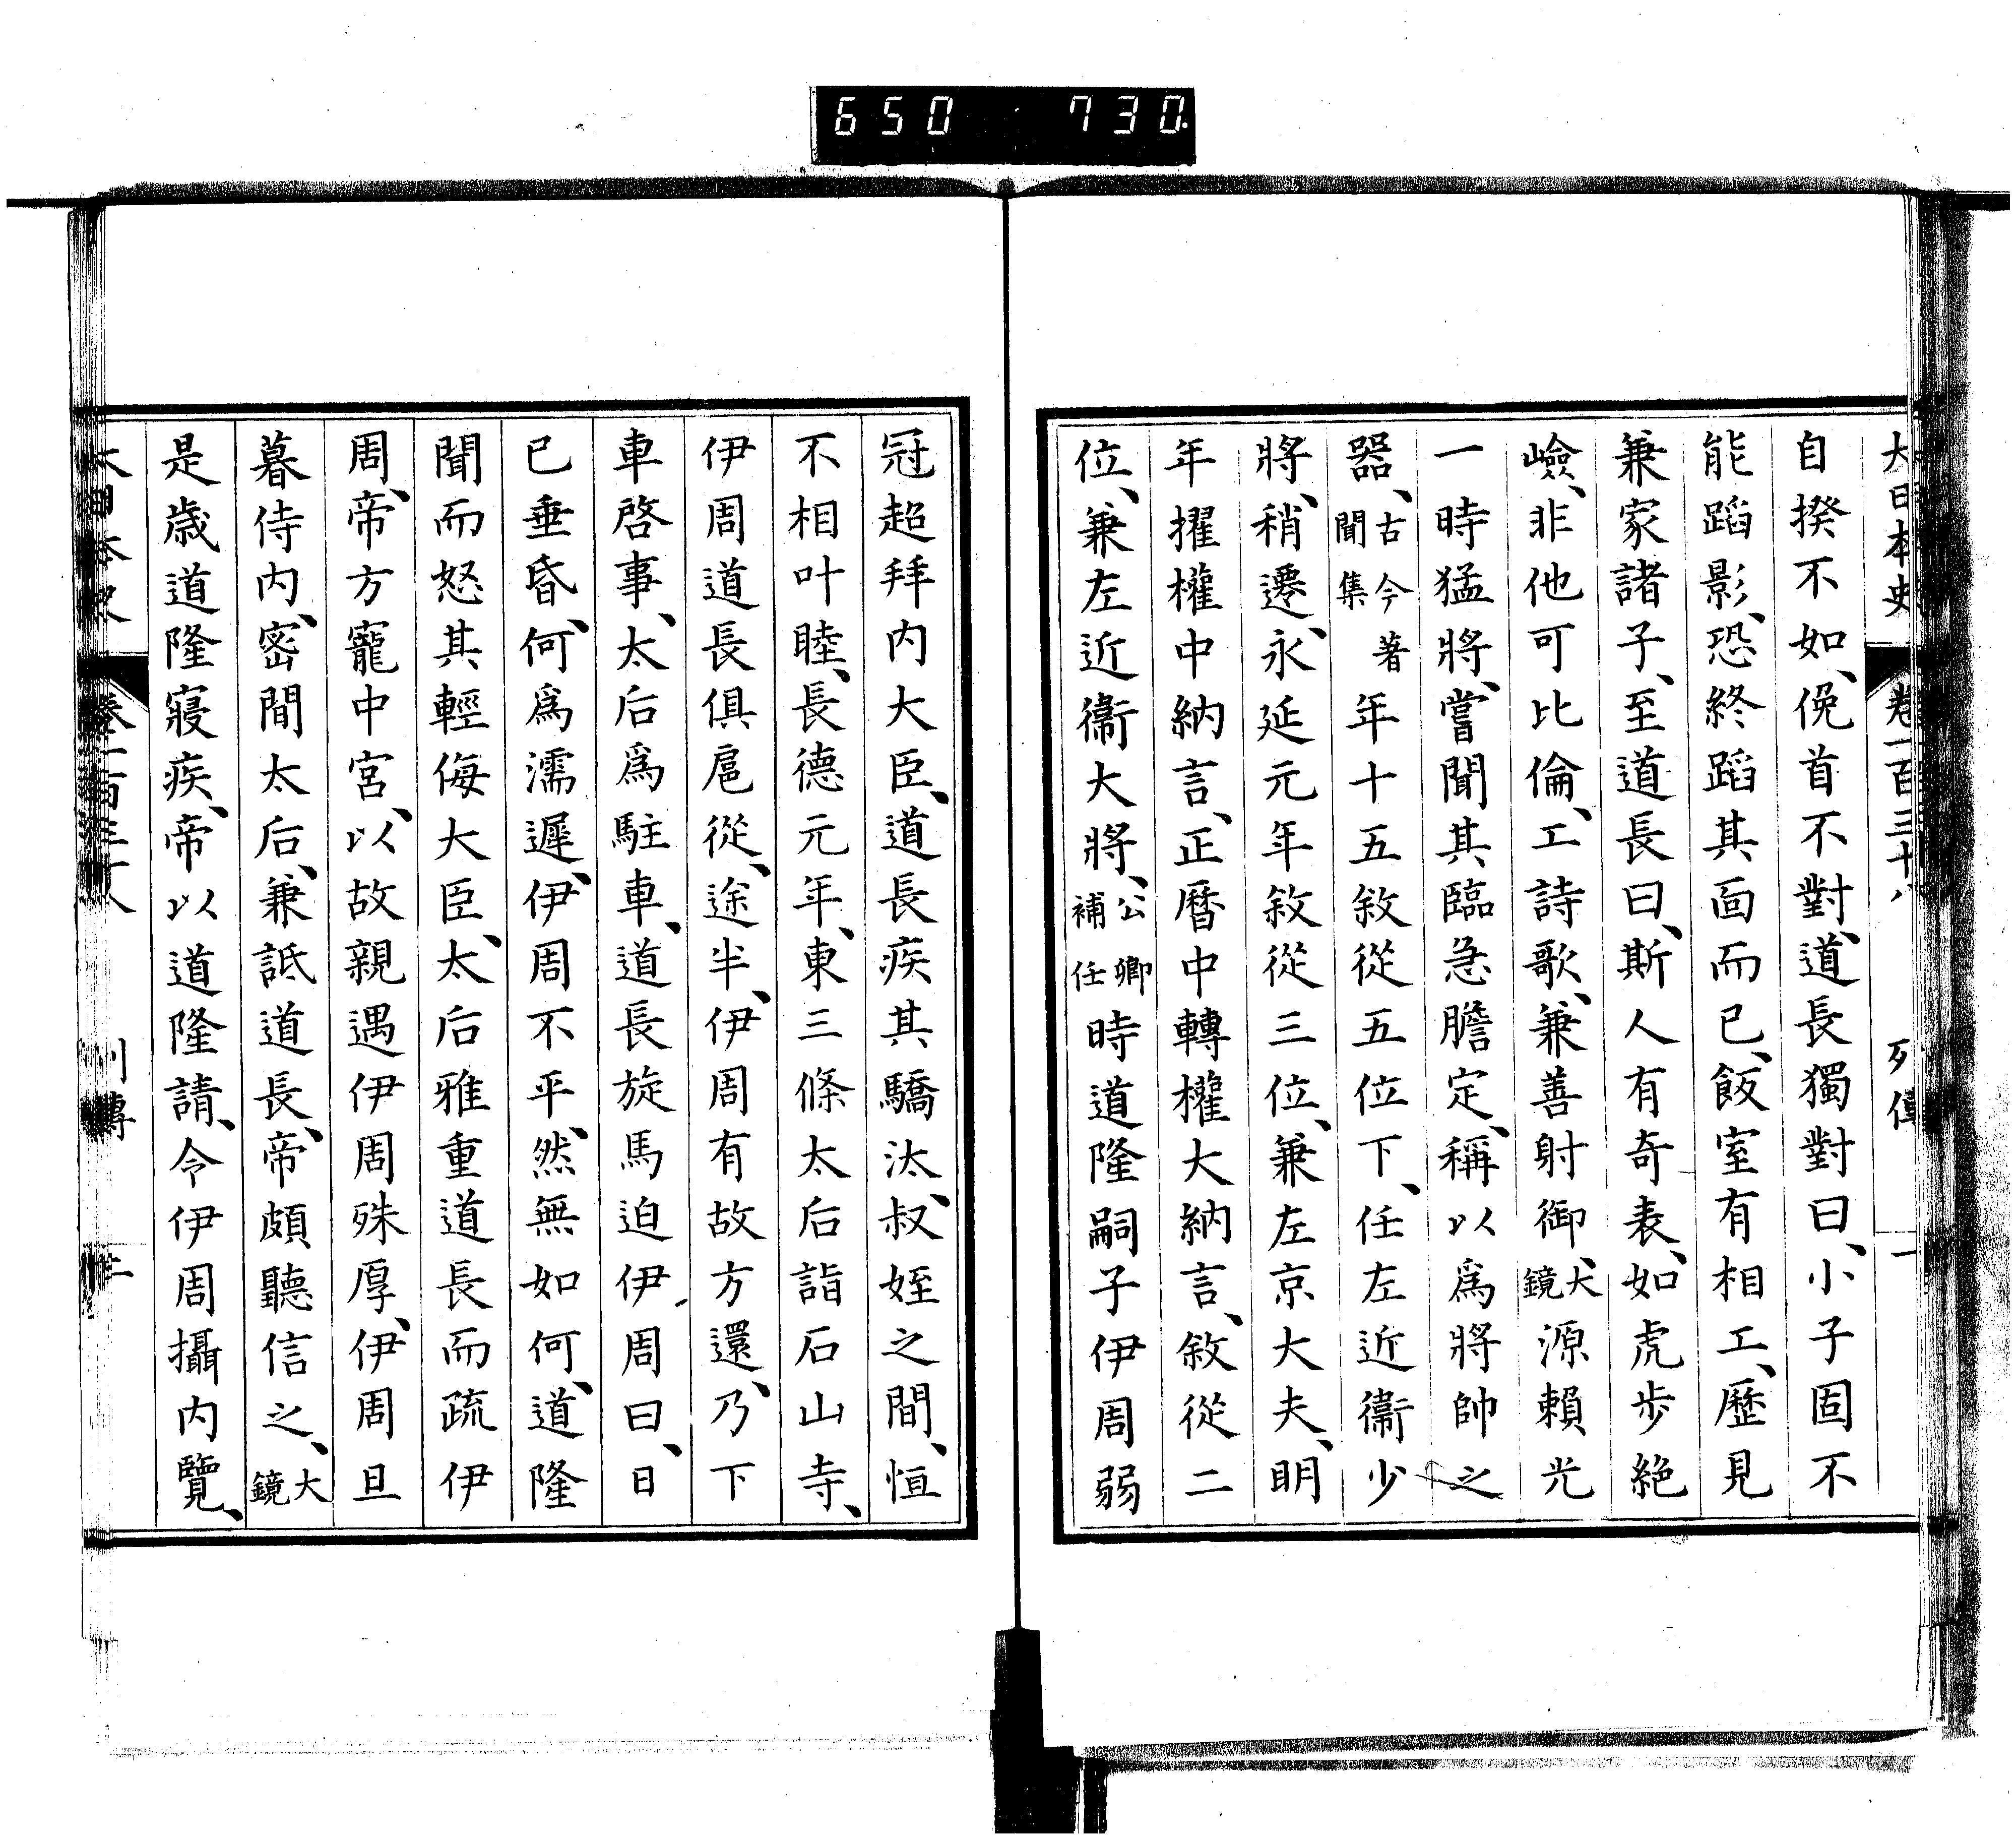 650 730.
大日本史 卷一百三十八 列傳 一
自揆不如、俛首不對、道長獨對曰、小子固不
能蹈影、恐終蹈其面而已、飯室有相工、歷見
兼家諸子、至道長曰、斯人有奇表、如虎步絕
嶮、非他可比倫、工詩歌、兼善射御、大鏡源賴光
一時猛將、嘗聞其臨急膽定、稱以爲將帥之
器、古今著聞集年十五敘從五位下、任左近衞少
將、稍遷、永延元年敘從三位、兼左京大夫、明
年擢權中納言、正曆中轉權大納言、敘從二
位、兼左近衞大將、公卿補任時道隆嗣子伊周弱
冠超拜內大臣、道長疾其驕汰、叔姪之間、恒
不相叶睦、長德元年、東三條太后詣石山寺、
伊周道長俱扈從、途半、伊周有故方還、乃下
車啓事、太后爲駐車、道長旋馬迫伊周曰、日
已垂昏、何爲濡遲、伊周不平、然無如何、道隆
聞而怒其輕侮大臣、太后雅重道長而疏伊
周、帝方寵中宮、以故親遇伊周殊厚、伊周旦
暮侍內、密間太后、兼詆道長、帝頗聽信之、大鏡
是歲道隆寢疾、帝以道隆請、令伊周攝內覽、
卷一百三十八 列傳